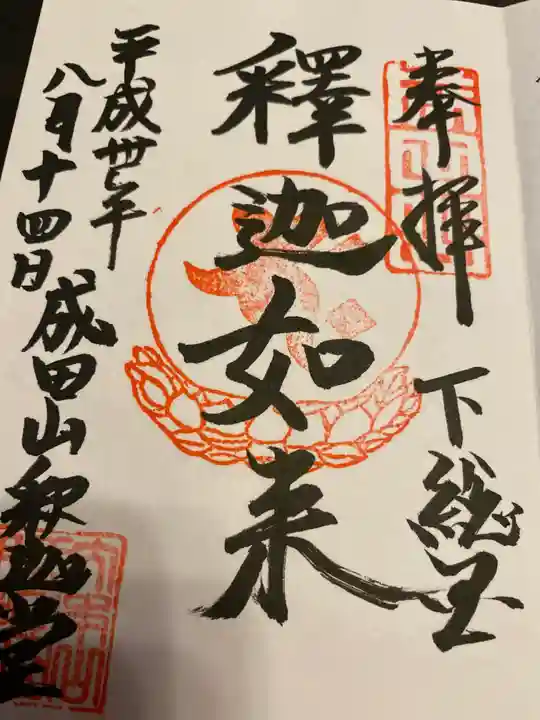 奉拝 下総国
釋迦如来
平成卅年
八月十四日 成田山釈迦堂